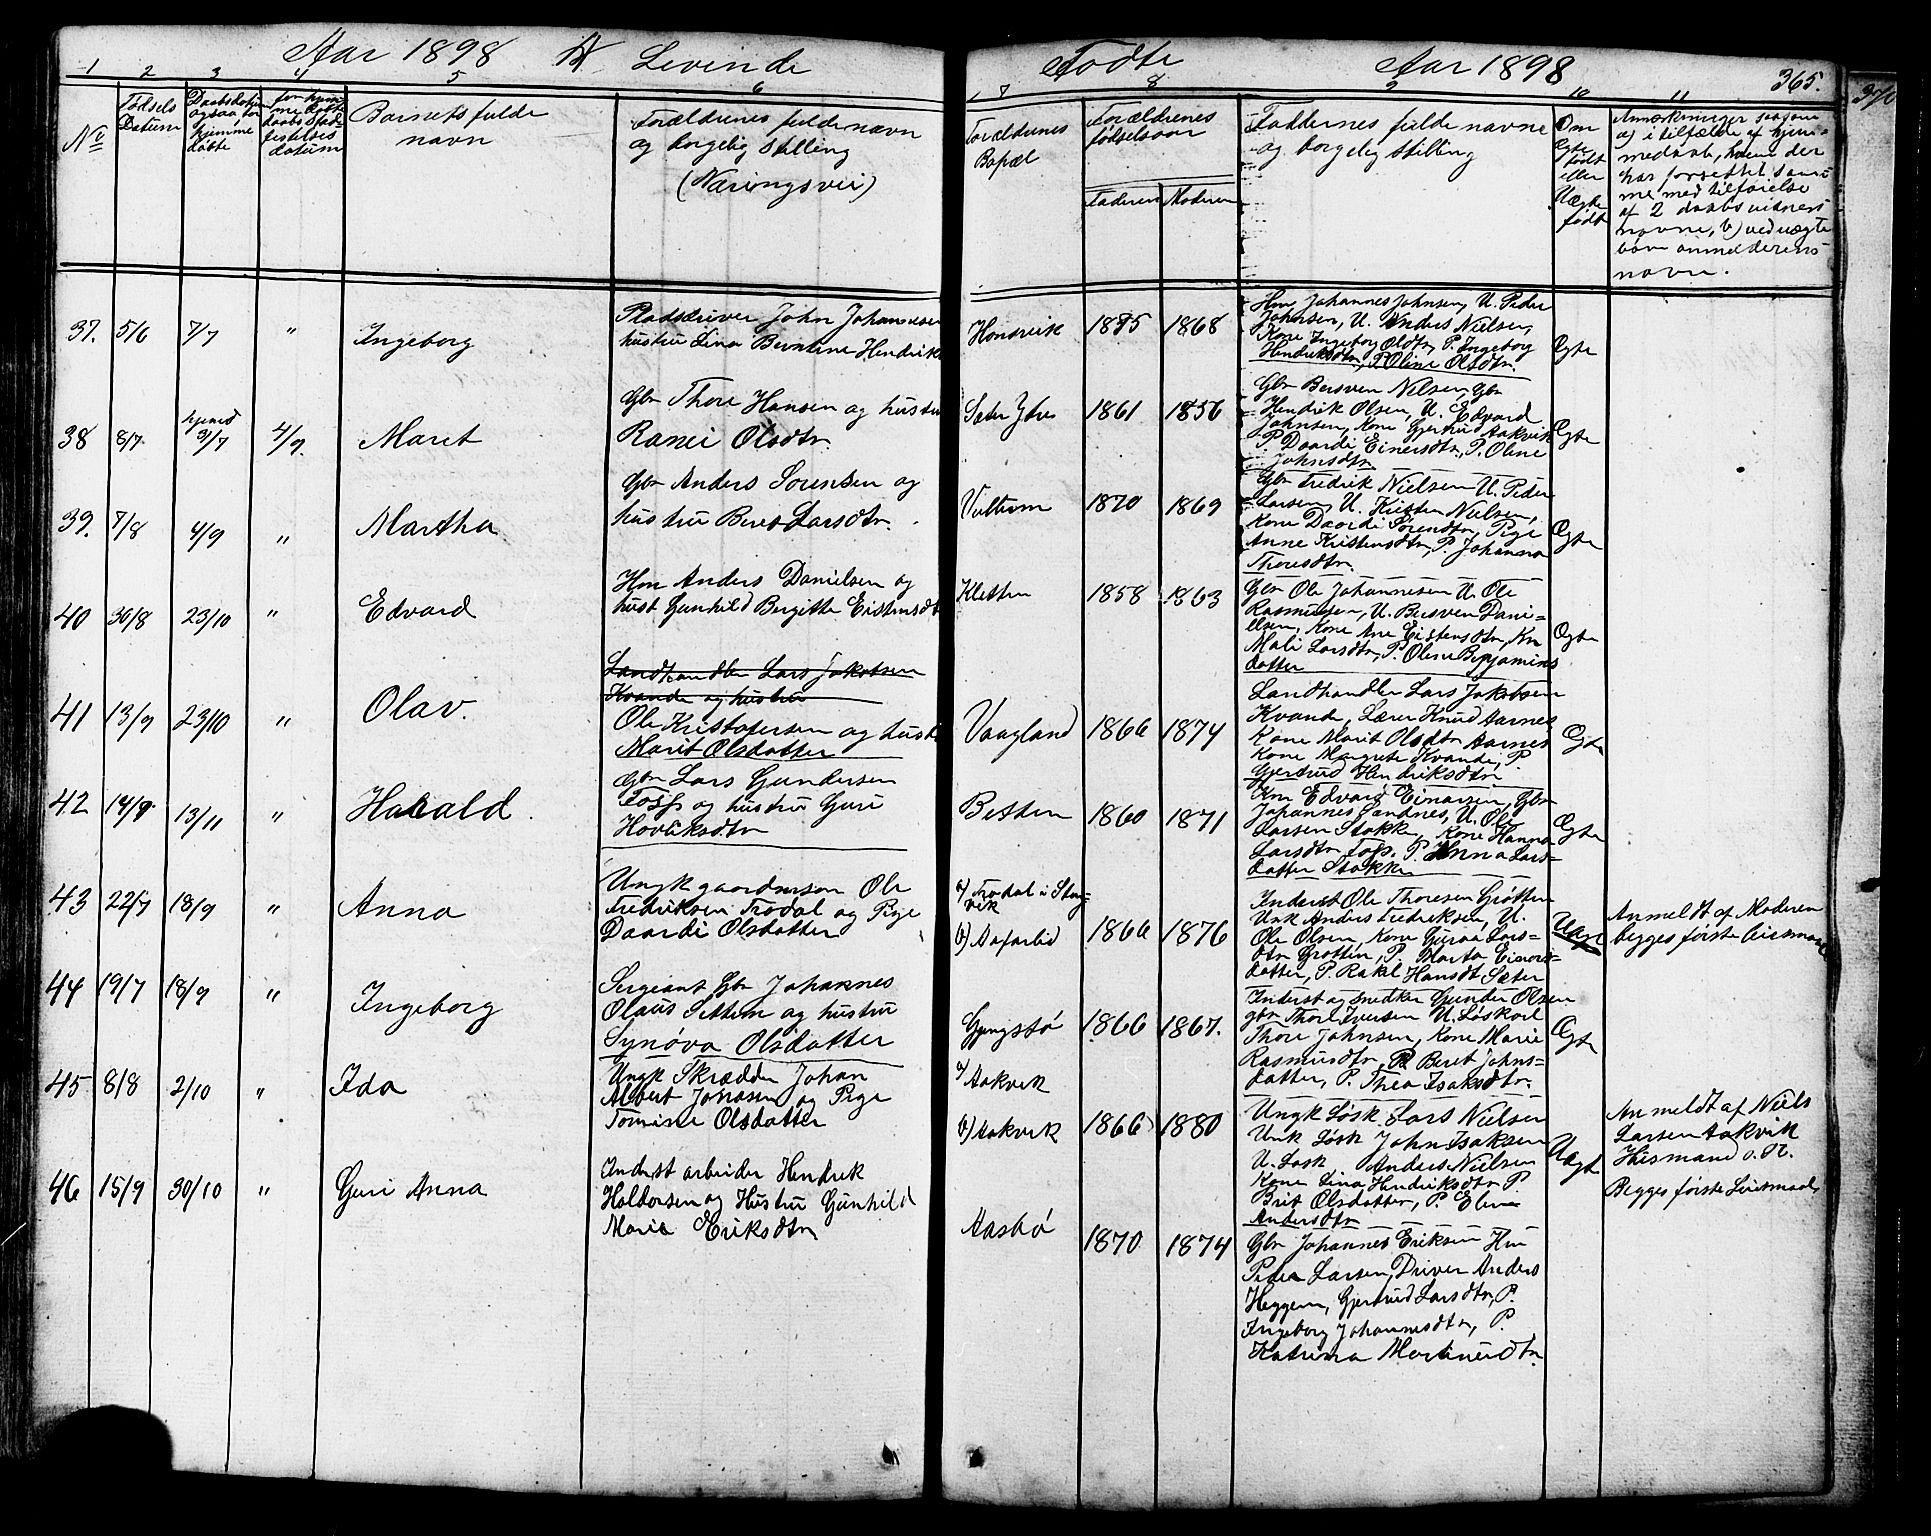 Aar 1898 A Levende
Fodte Aar 1898
365.
370
1 2 3 4 5 6
7 8 9 10 11
No
Fødsels
Datum
Daabsdatum
ogsaa for
hjemme
døbte
for hjem
me døbte
daabs stad
festelses
datum
Barnets fulde
navn
Forældrenes fulde navn
og borgelig stilling
(Næringsvei)
Forældrenes
Bopæl
Forældrenes
fødselsaar
Faderen Moderen
Faddernes fulde navne
og borgelig stilling
Om
Ægte
født
eller
Uægte
født
Anmerkninger saasom
a) i tilfælde af hjem-
medaab, hvem der
har forrettet sam-
me med tilføielse
af 2 daabsvidners
navne, b) ved uægte
børn anmelderens
navn.
37. 5/6 7/7 " Ingeborg
Pladsdriver John Johannesen
hustru Lina Berntine Hendriks
Hondvik 1875 1868
Hm Johannes Johnsen, U. Peder
Johnsen, U. Anders Nielsen,
Kone Ingeborg Olsdtr, P. Ingeborg
Hendriksdtr, P. Oline Olsdtr.
Ægte
38 8/7 hjemd 31/7 4/9. Maret
Gbr Thore Hansen og hustru
Ranei Olsdtr.
Sæter Ytre 1861 1856
Gbr Bersven Nilsen, Gbr
Hendrik Olsen, U. Edvard
Johnsen, Kone Gjertrud Aakvik
P. Daardi Einersdtr, P. Oline
Johnsdtr
Ægte
39. 7/8 4/9 " Martha
Gbr Anders Sørensen og
hustru Beret Larsdtr.
Vultrom 1870 1869
Gbr Fredrik Nielsen U. Peder
Larsen, U. Kristen Nielsen,
Kone Daardi Sørensdtr, Pige
Anne Kristensdtr, P. Johanna
Thoresdtr.
Ægte
40 30/8 23/10 " Edvard
Hm Anders Danielsen og
hust Gunhild Bergitte Eistensdt
Kletten 1858 1863
Gbr Ole Johannesen U. Ole
Rasmusen, U. Bersven Dani-
elsen, Kone Ane Eistensdtr, Kn
Mali Larsdtr, P. Oline Benjamins
datter
Ægte
41 13/9 23/10 " Olav.
Landhandler Lars Jakobsen
Kvande og hustru
Ole Kristofersen og hust
Marit Olsdatter
Vaagland 1866 1874
Landhandler Lars Jakobsen
Kvande, Lærer Knud Aarnes
Kone Marit Olsdtr Aarnes
Kone Margrete Kvande, P.
Gjertrud Hendriksdtr
Ægte
42 14/9 13/11 " Harald.
Gbr Lars Gundersen
Foss og hustru Guri
Hovaksdtr
Betten 1860 1871
Km Edvard Einarsen, Gbr
Johannes Sandnes, U. Ole
Larsen Stokke, Kone Hanna
Larsdtr Foss. P. Anna Lars-
datter Stokke
Ægte
43 22/7 18/9 " Anna
Ungk gaardmson Ole
Fredriksen Trodal og Pige
Daardi Olsdatter
a) Trodal i Stang
vik
b) Aafarlid 1866 1876
Inderst Ole Thoresen Grøtten
Unk Anders Fredriksen, U.
Ole Olsen, Kone Guraa Lars-
dtr Grøtten, P. Marta Einars-
datter, P. Rakl Hansdt Sæter
Uægt
Anmeldt af Moderen
begges første leiermaal
44 19/7 18/9 " Ingeborg
Sergeant Gbr Johannes
Olaus Settem og hustru
Synøva Olsdatter
Gyngstø 1866 1867.
Inderst og snedker Gunder Olsen
gbr Thore Iversen U. Løskarl
Thore Johnsen, Kone Marie
Rasmusdtr, P. Beret Johns-
datter, P. Thea Isaksdtr.
Ægte
45 8/8 2/10 " Ida
Ungk Skrædder Johan
Albert Jonasen og Pige
Tomine Olsdatter
a) Aakvik
b) Aakvik 1866 1880
Ungk Løsk Lars Nielsen
Unk Løsk John Isaksen
U. Løsk Anders Nielsen
Kone Lina Hendriksdtr P
Brit Olsdatter, P. Eline
Andersdtr
Uægt
Anmeldt af Niels
Larsen Aakvik
Husmand s. st.
Begges første Leiermaal
46 15/9 30/10 " Guri Anna
Inderst arbeider Hendrik
Haldorsen og Hustru Gunhild
Marie Eriksdtr
Aasbø 1870 1874
Gbr Johannes Eriksen Hm
Peder Larsen, Driver Anders
Heggem, Gjertrud Larsdtr, P.
Ingeborg Johannesdtr, P.
Katrina Martinusdtr